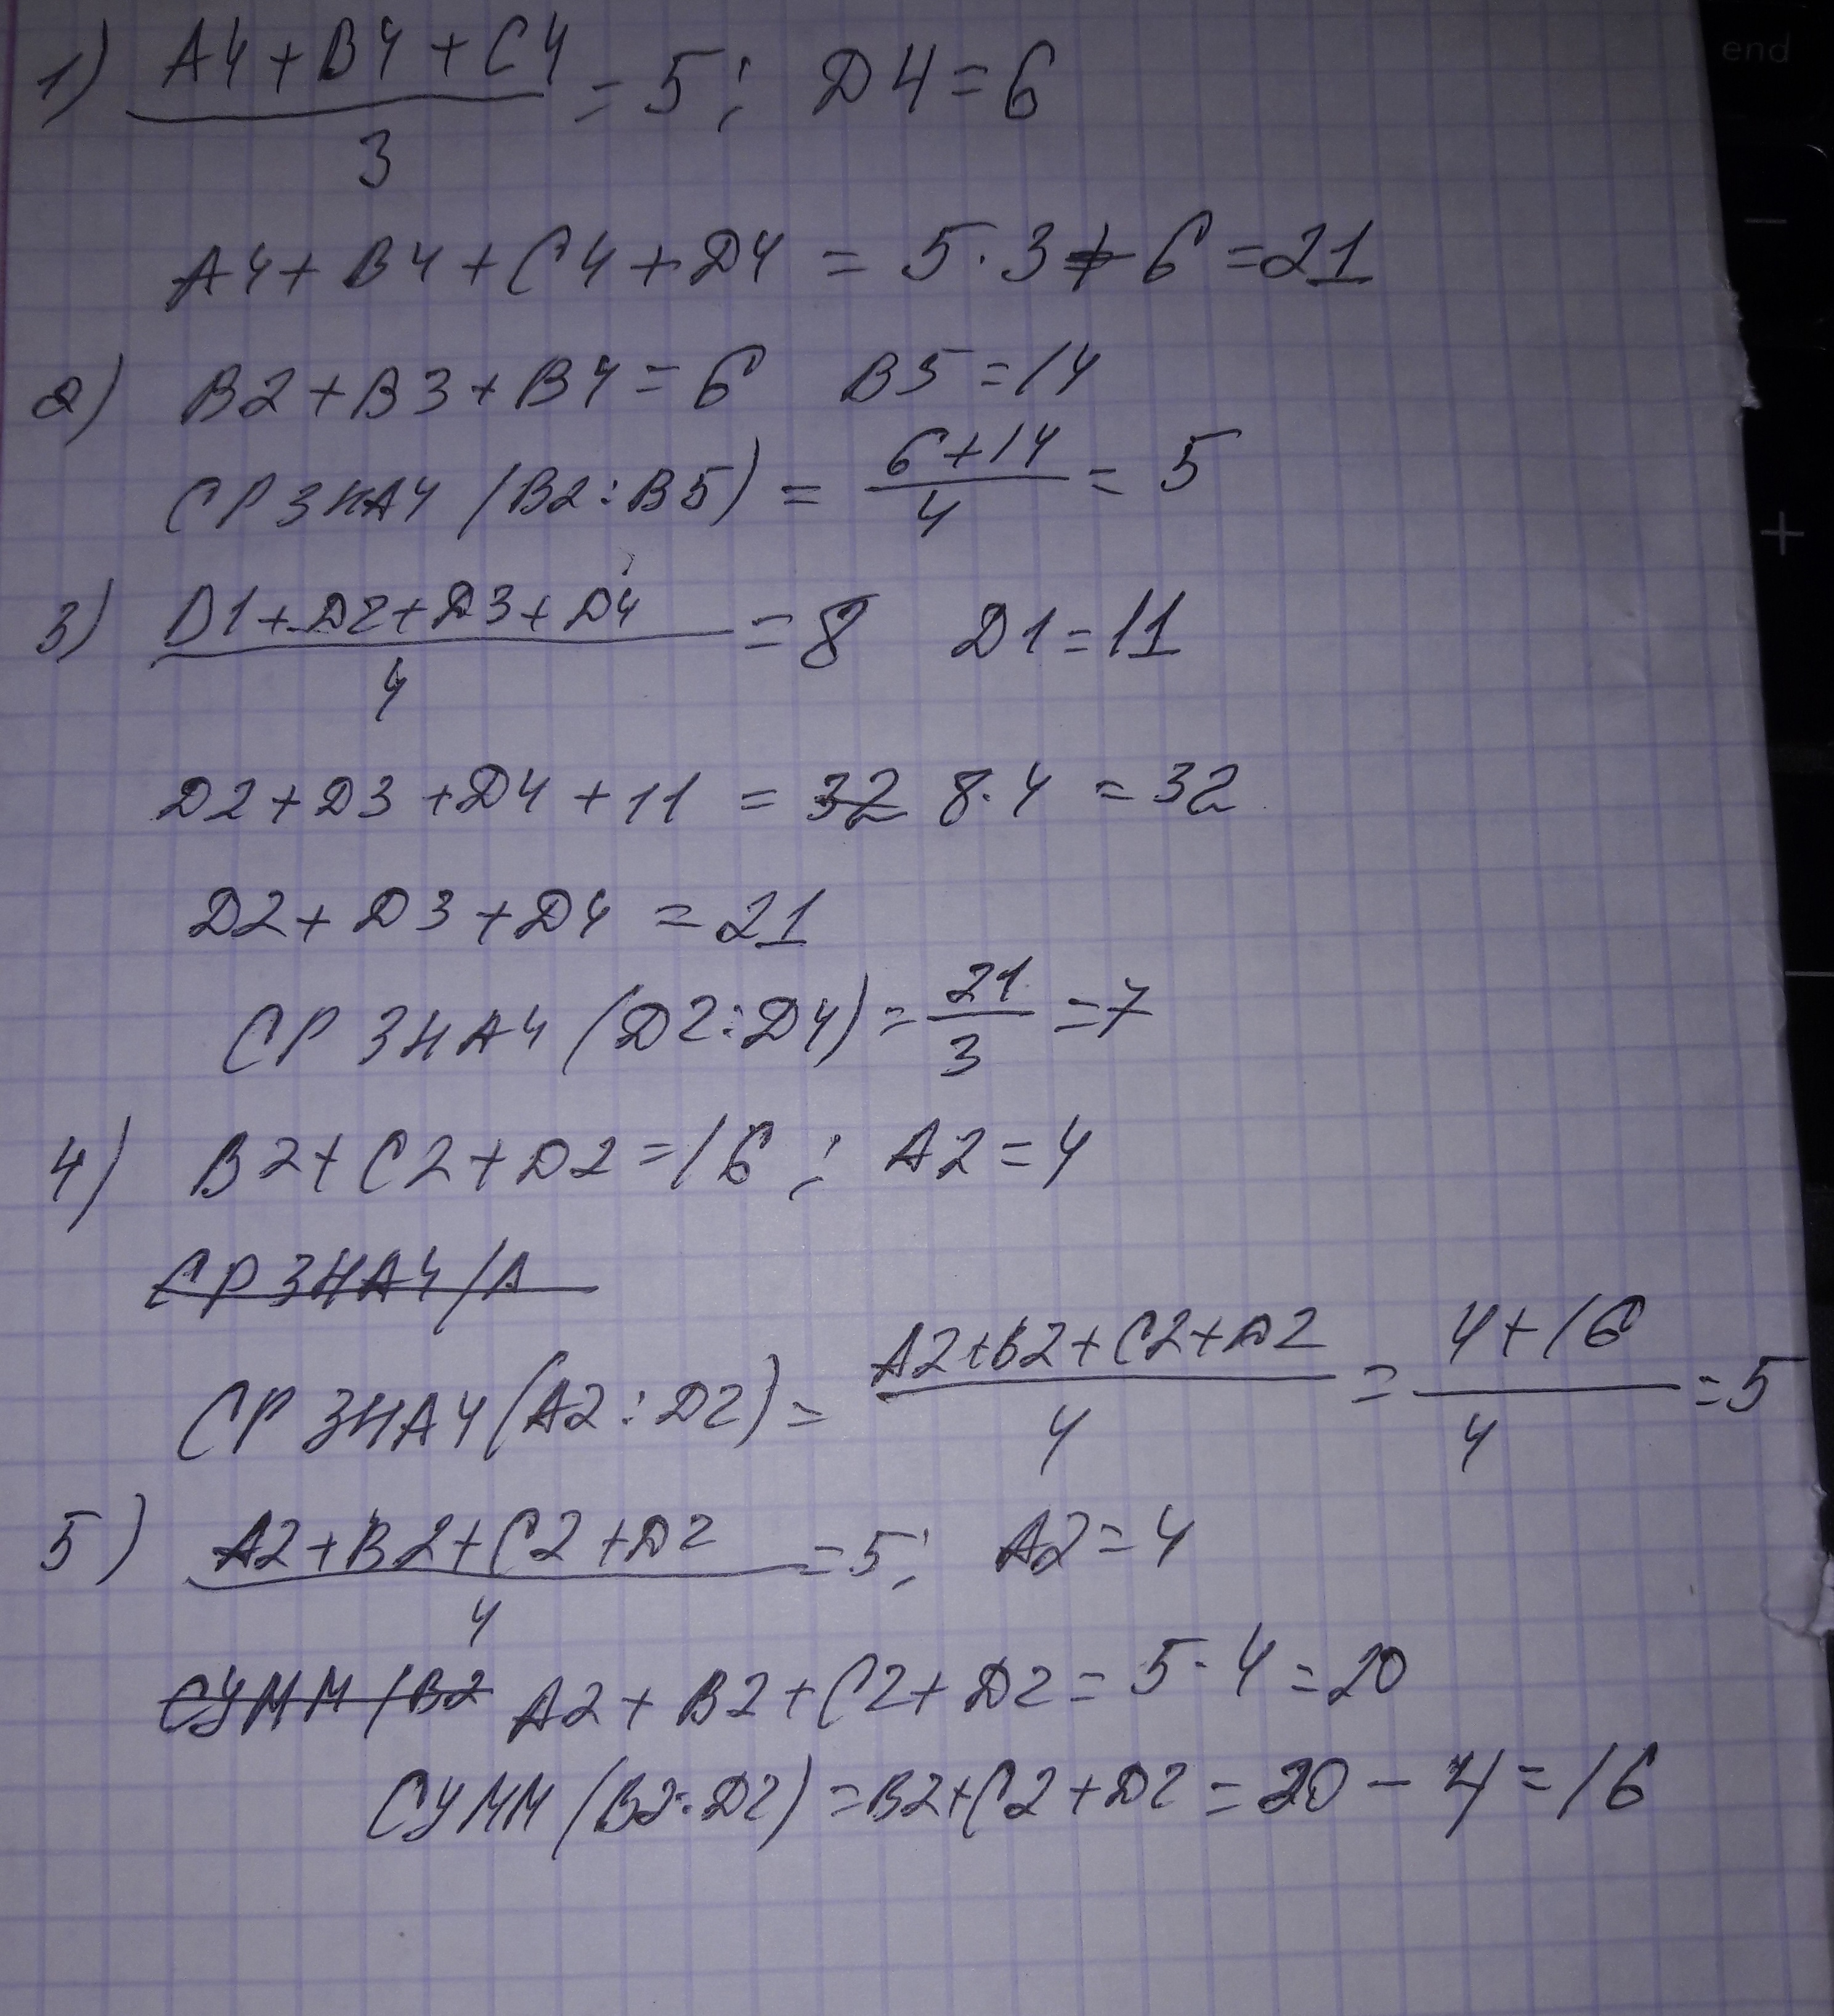 end
1) (А4+В4+С4)/3 = 5; D4=6
А4+В4+С4+D4 = 5·3+6=21
2) В2+В3+В4=6 В5=14
СРЗНАЧ(В2:В5) = (6+14)/4 = 5
3) (D1+D2+D3+D4)/4 = 8 D1=11
D2+D3+D4+11 = 32 8·4 = 32
D2+D3+D4 = 21
СРЗНАЧ(D2:D4) = 21/3 = 7
4) В2+С2+D2=16; А2=4
СРЗНАЧ(А
СРЗНАЧ(А2:D2) = (А2+В2+С2+D2)/4 = (4+16)/4 = 5
5) (А2+В2+С2+D2)/4 = 5; А2=4
СУММ(В2 А2+В2+С2+D2 = 5·4 = 20
СУММ(В2:D2) = В2+С2+D2 = 20 - 4 = 16